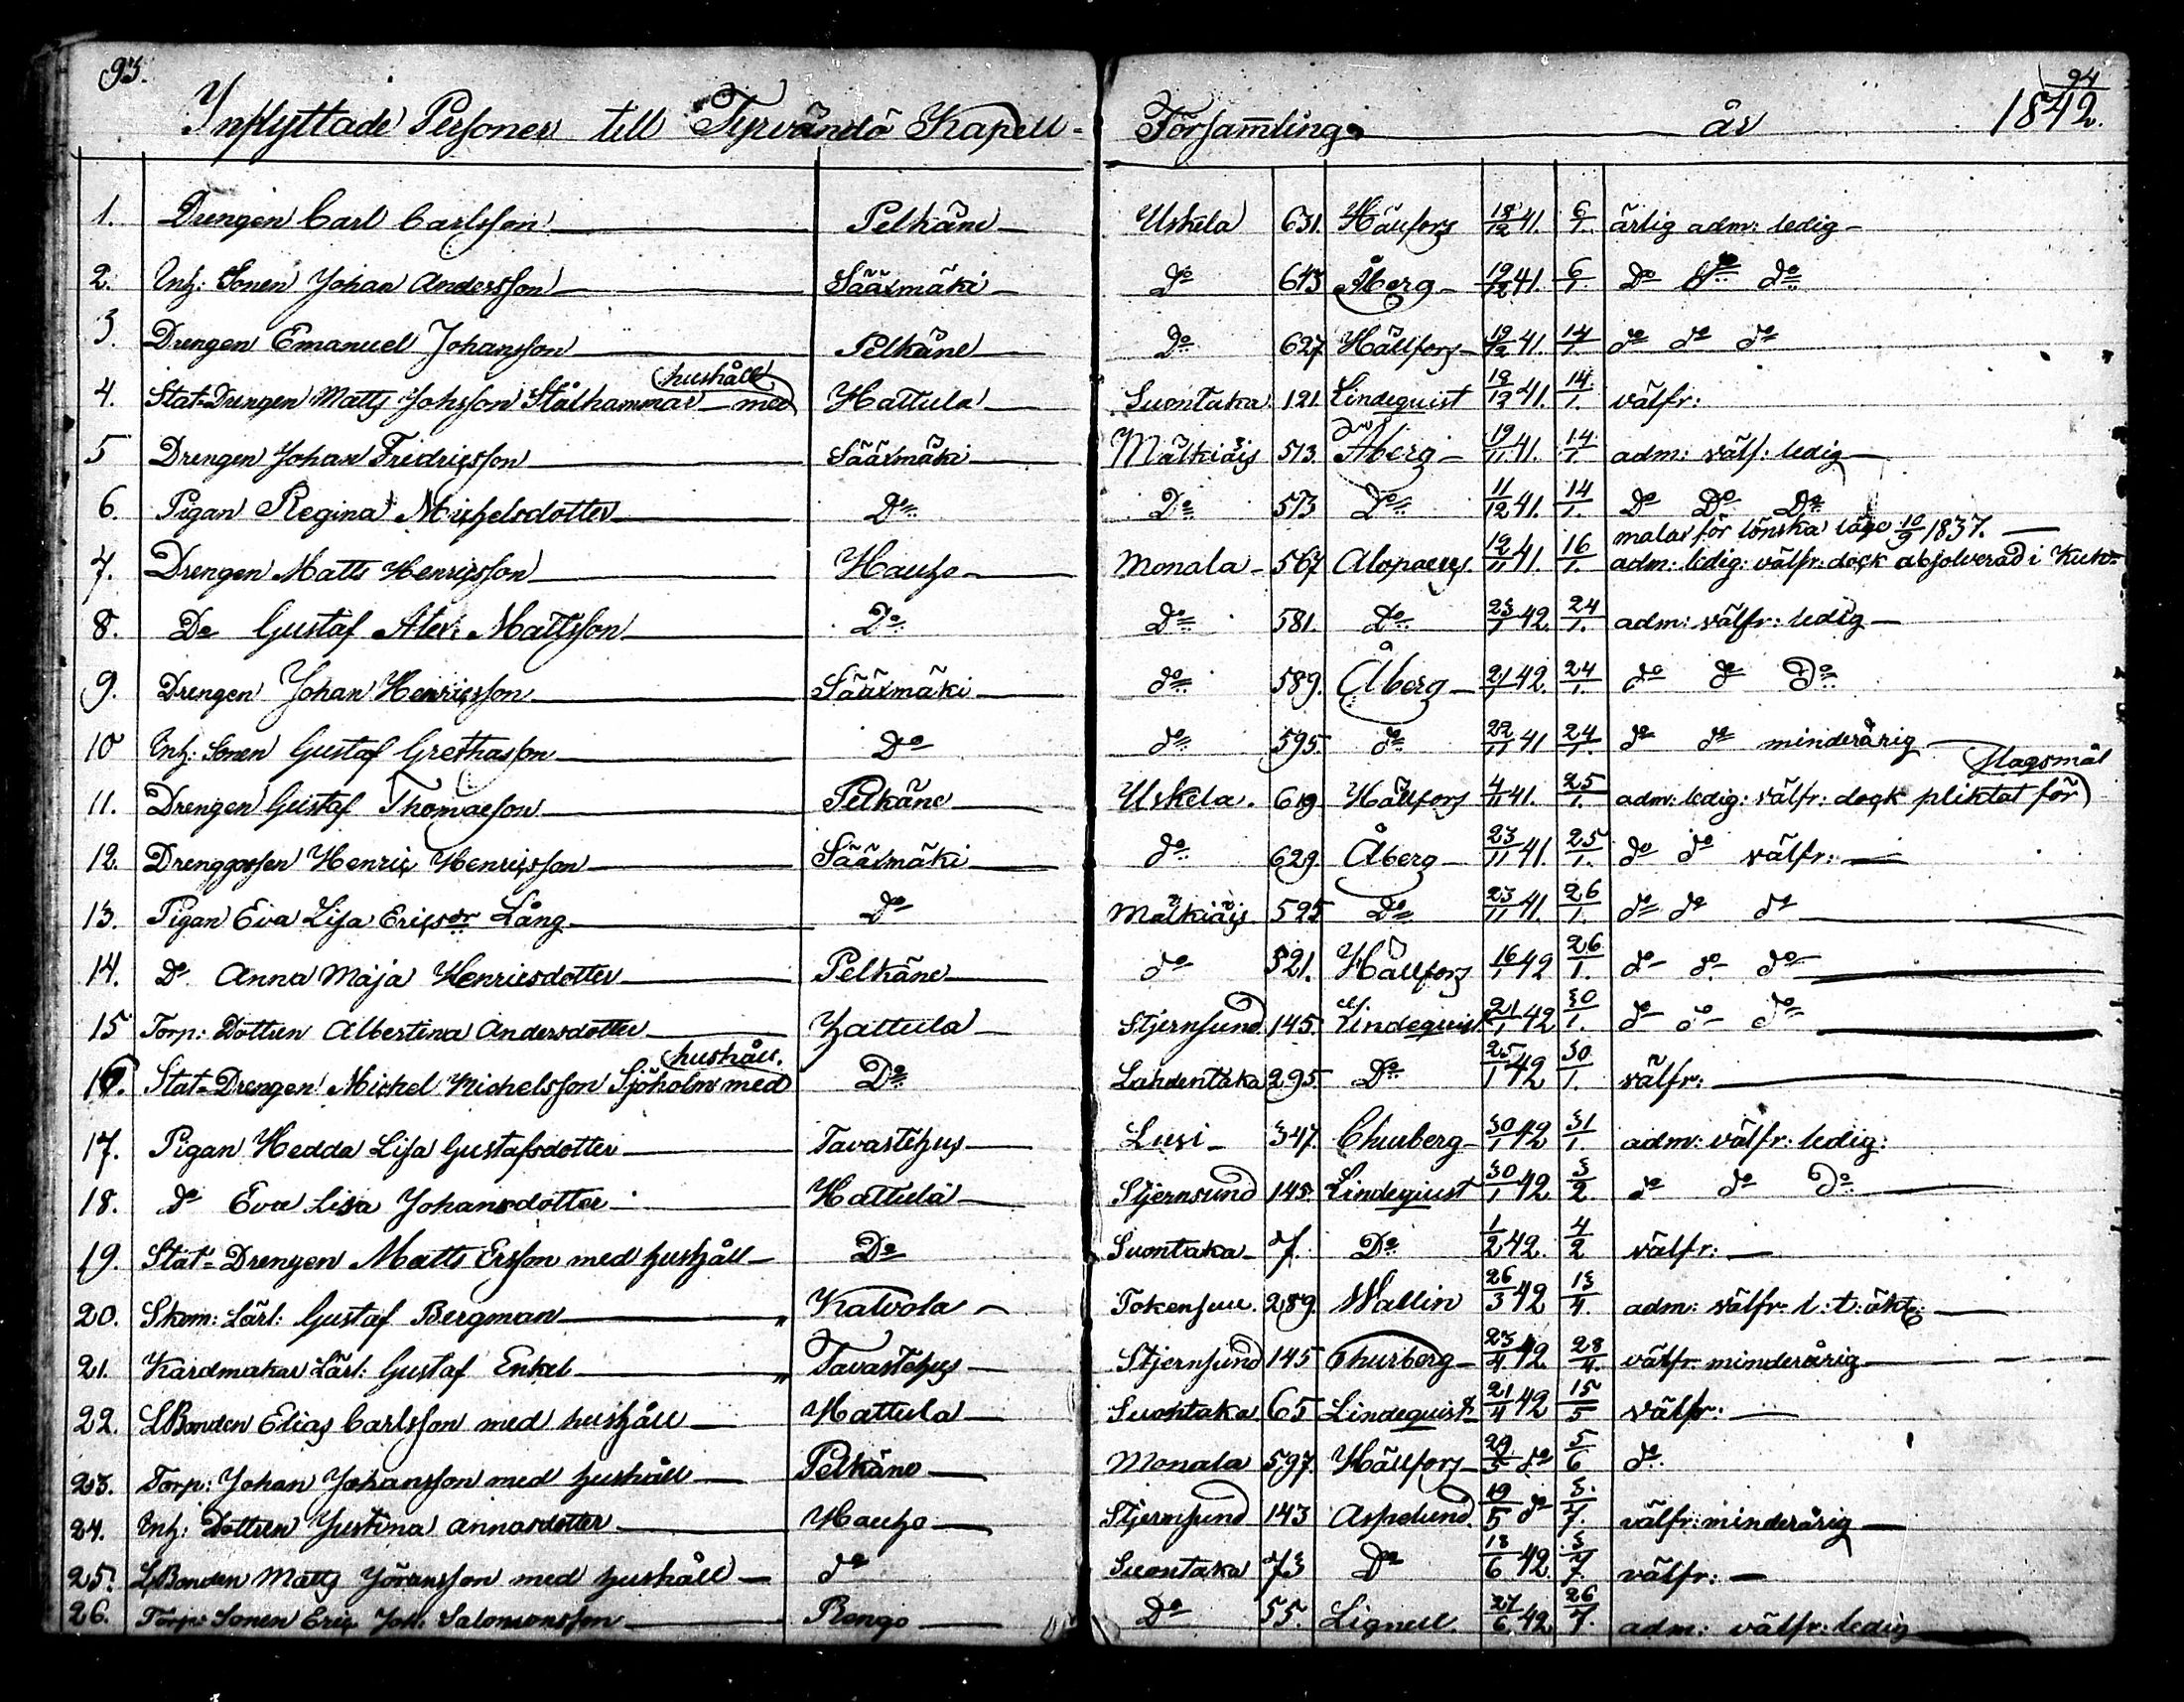 93. 94
Inflyttade Personer till Tyrvändö Kapell- Församling år 1842.
1. Drengen Carl Carlsson Pelkäne Uskela 631. Hällfors 18/12 41. 6/1. ärlig adm: ledig
2. Inh: Sonen Johan Andersson Sääxmäki Do 643 Åberg 19/12 41. 6/1. Do do do
3. Drengen Emanuel Johansson Pelkäne Do 627 Hällfors 19/12 41. 14/1. do do do
hushåll
4. Stat-Drengen Matts Johsson Stålhammar med Hattula Suontaka 121. Lindequist 19/12 41. 14/1. välfr:
5 Drengen Johan Fredricsson Sääxmäki Mälkiäis 513. Åberg 19/11 41. 14/1. adm: välf: ledig
6. Pigan Regina Michelsdotter Do Do 573 Do 11/12 41. 14/1. Do Do Do
malax för lönska läge 10/9 1837.
7. Drengen Matts Henricsson Hauho Monala 567 Alopaeus 12/11 41. 16/1. adm: ledig: välfr: dock absolverad i Kuh-
8. Do Gustaf Alex. Mattsson Do Do 581. Do 23/1 42. 24/1. adm: välfr: ledig
9. Drengen Johan Henricsson Sääxmäki do 589. Åberg 21/1 42. 24/1. do do Do
10 Inh: Sonen Gustaf Grethasson Do do 595. do 22/11 41 24/1. do do minderårig
slagsmål
11. Drengen Gustaf Thomaesson Pelkäne Uskela 619 Hällfors 4/11 41. 25/1. adm: ledig: välfr: dock pliktat för
12. Drenggossen Henric Henricsson Sääxmäki do 629. Åberg 23/11 41. 25/1. do do välfr:
13. Pigan Eva Lisa Ericsdr Lång Do Mälkiäis 525 Do 23/11 41. 26/1. do do do
14. Do Anna Maja Henricsdotter Pelkäne do 521. Hällfors 16/1 42 26/1. do do do
15 Torp: Dottren Albertina Andersdotter Hattula Stjernsund 145. Lindequist 21/1 42 30/1. do do do
hushåll.
16. Stat-Drengen Michel Michelsson Sjöholm med Do Lahdentaka 295. Do 25/1 42 30/1. välfr:
17. Pigan Hedda Lisa Gustafsdotter Tavastehus Lusi 347. Churberg 30/1 42 31/1. adm: välfr: ledig:
18. do Eva Lisa Johansdotter Hattula Stjernsund 145. Lindequist 30/1 42 3/2 do do Do
19. Stat-Drengen Matts Ersson med hushåll Do Suontaka 7. Do 1/2 42. 4/2 välfr:
20. Skom: Lärl: Gustaf Bergman Kalvola 289. Wallin 26/3 42 13/4. adm: välfr: l: t: äkt:
21. Kardmakar Lärl: Gustaf Enkel Tavastehus Stjernsund 145 Churberg 23/4 42 28/4. välfr: minderårig
22. LBonden Elias Carlsson med hushåll Hattula Suontaka 65 Lindequist 21/4 42 15/5 välfr:
23. Torp: Johan Johansson med hushåll Pelkäne Monala 597. Hällfors 29/5 do 5/6 do
24. Inh: Dottren Justina Annasdotter Hauho Stjernsund 143 Aspelund 19/5 do 3/7. välfr: minderårig
25. LBonden Matts Jöransson med hushåll do Suontaka 73 Do 13/6 42. 3/7. välfr:
26. Torp: Sonen Eric Joh. Salomonsson Rengo Do 55. Lignell 27/6 42 26/7. adm: välfr: ledig